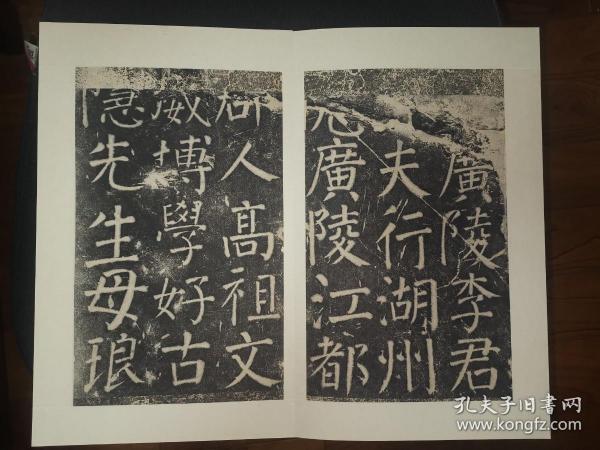 廣陵李君
夫行湖州
廣陵江都
人高祖文
威博學好古
隱先生母琅
孔夫子旧書网
www.kongfz.com